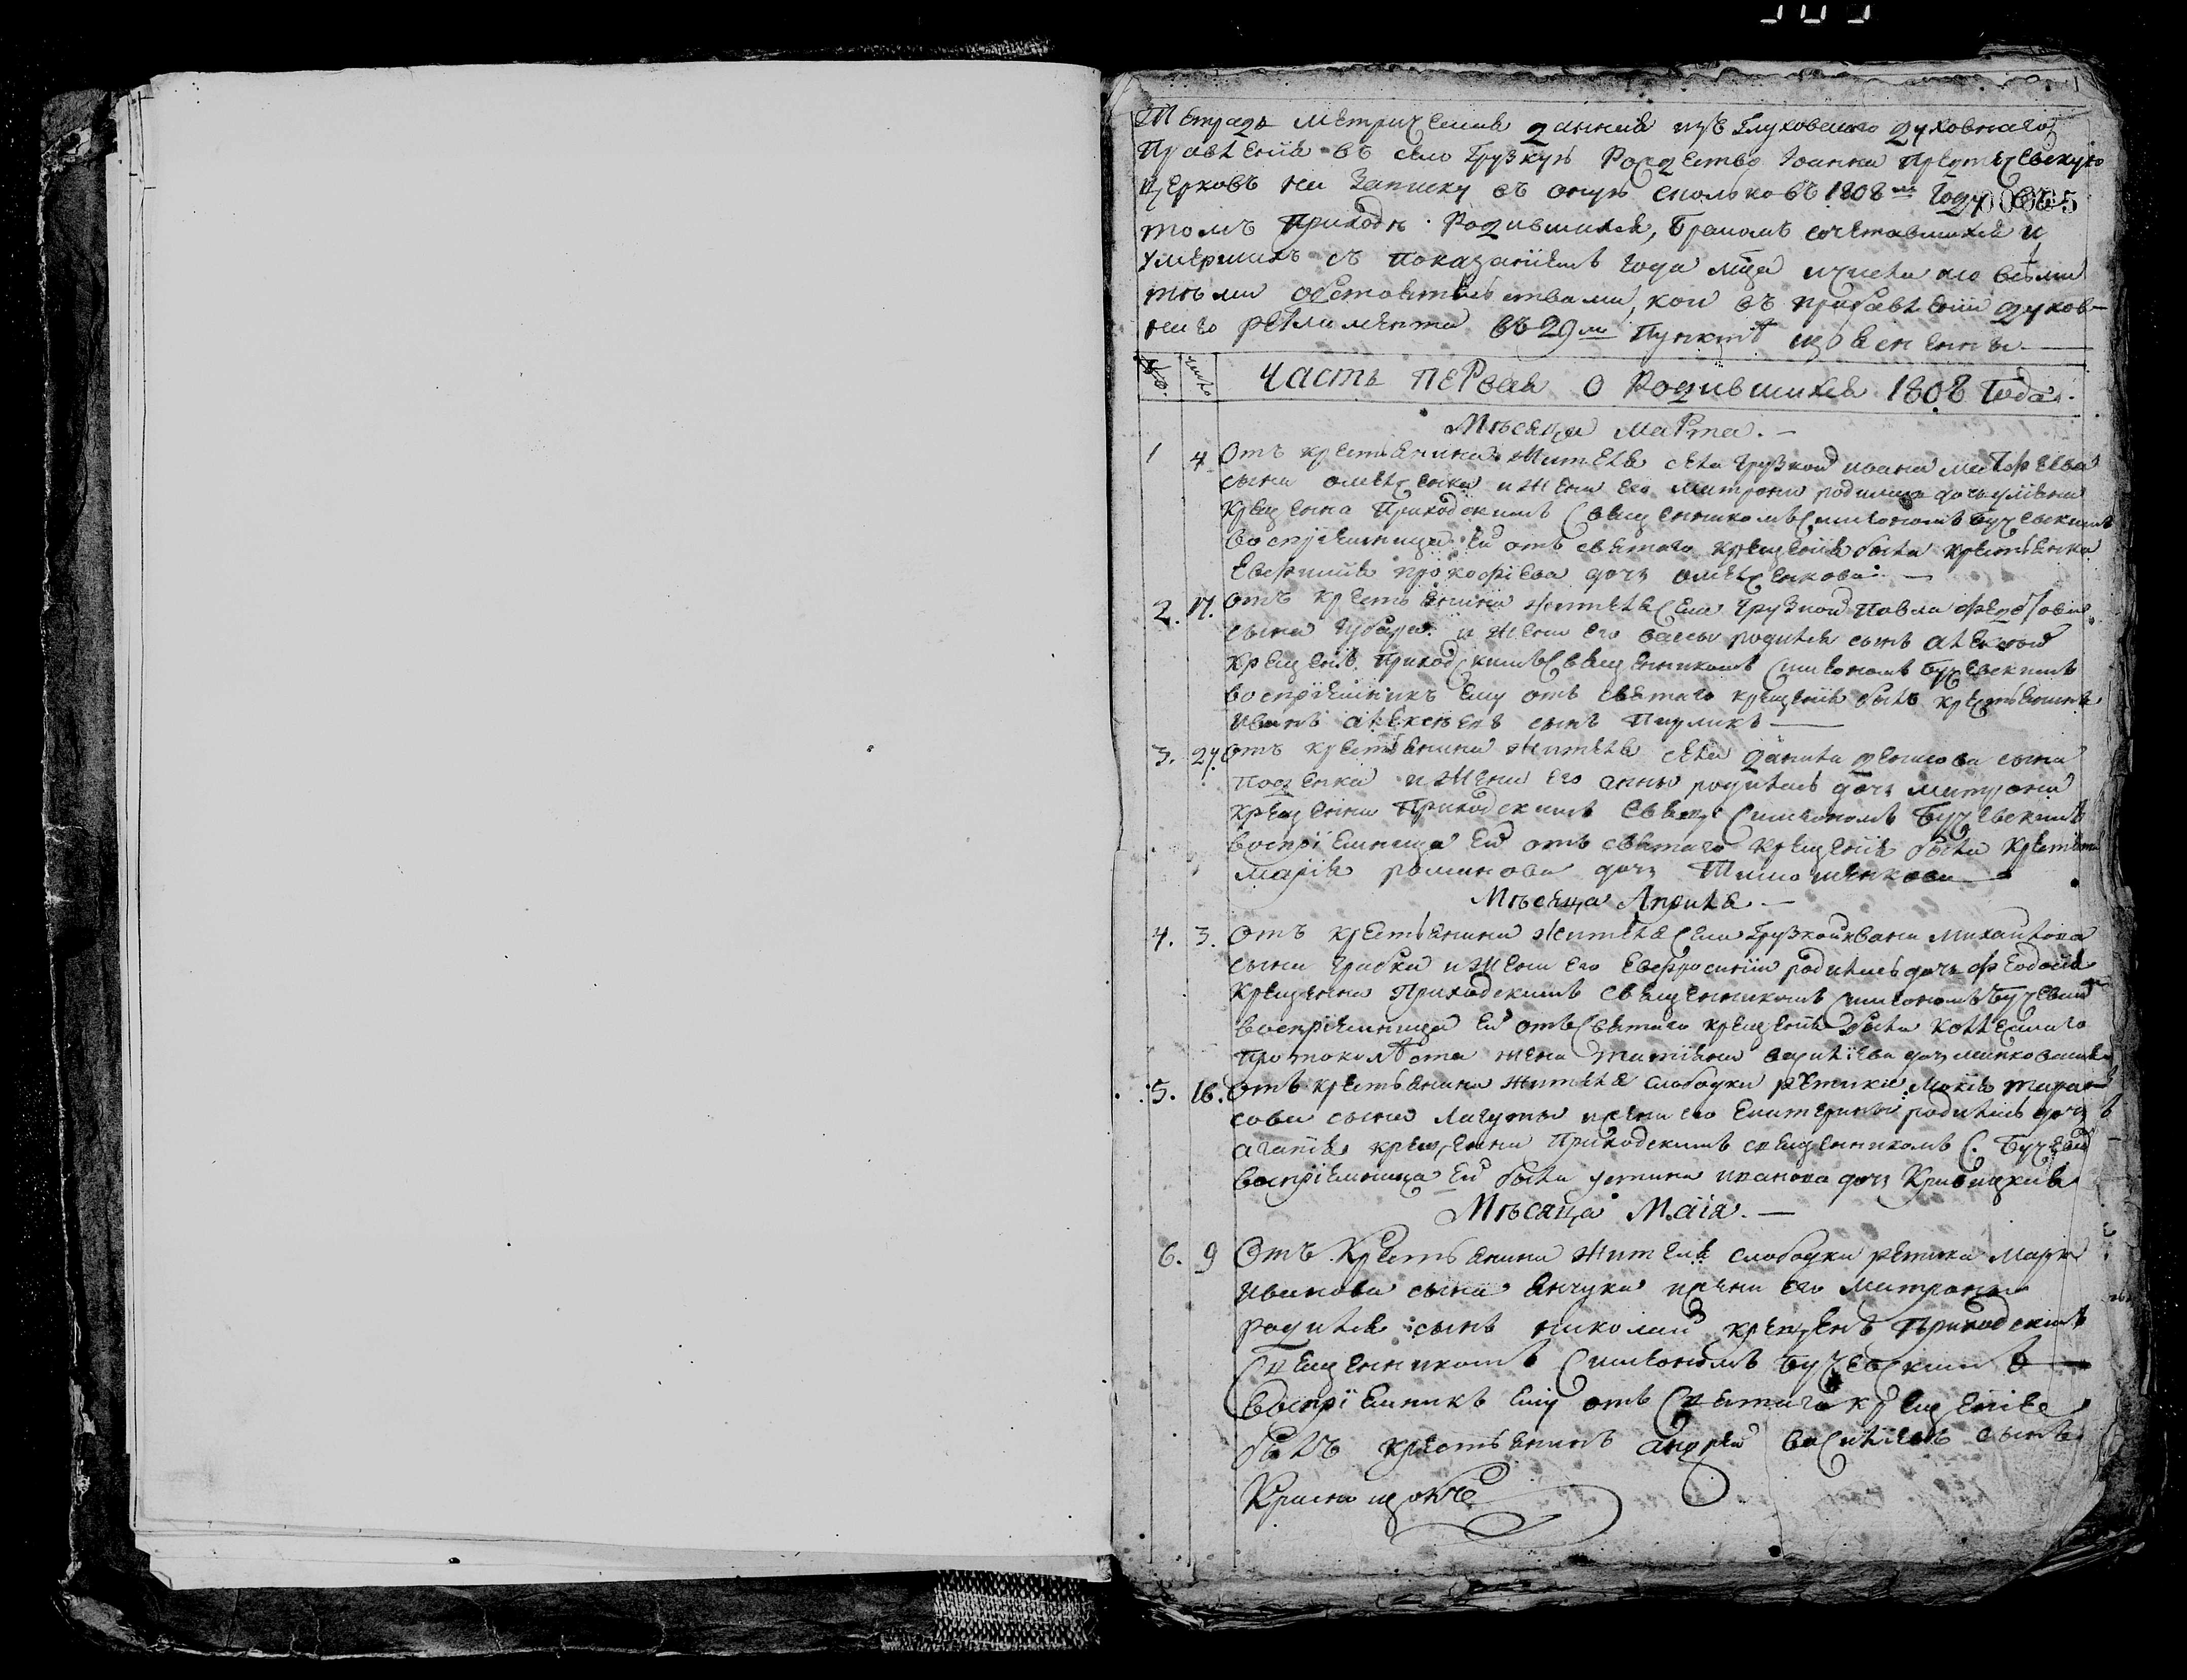 Тетрадь метрическая данная изъ Глуховского духовнаго
Правленія въ село Грузкую Рождество Іоанна Предтечевскую
церковъ на записку въ оную сколько въ 1808м Году въ
00005
томъ приходѣ Родившихся, Бракомъ сочетавшихся и
умершихъ съ показаніемъ года мца и числа и со всѣми
тѣми обстоятельствами, кои въ прибавленіи духов-
наго регламента въ 29м Пунктѣ изъясненны
№ число
Часть первая о Родившихся 1808 Года.
Мѣсяца Марта.
1 4 Отъ крестьянина жителя села Грузкой Ивана
сына и жены его Матроны родилась дочь
Крещена Приходскимъ Священникомъ Симеономъ Бучевскимъ
воспріемница ей отъ святаго крещенія была крестьянка
Евфимія Прокофіева дочь
2. 17. Отъ крестьянина жителя села Грузкой Павла Федотова
сына Губаря и жены его Вассы родился сынъ Алексей
Крещенъ Приходскимъ Священникомъ Симеономъ Бучевскимъ
воспріемникъ ему отъ святаго крещенія былъ крестьянинъ
Иванъ Алексеевъ сынъ
3. 27. Отъ крестьянина жителя села Данила Денисова сына
и жены его Анны родилась дочь Матрона
Крещенна Приходскимъ Свящ: Симеономъ Бучевскимъ
воспріемница ей отъ святаго крещенія была крестьянка
Марія Романова дочь Тимошенкова
Мѣсяца Апрѣля.
4. 3. Отъ крестьянина жителя села Грузкой Ивана Михайлова
сына Грибка и жены его Евфросиніи родилась дочь Феодосія
Крещенна Приходскимъ Священникомъ Симеономъ Бучевским
воспріемница ей отъ Святаго крещенія была коллежскаго
протоколиста жена Татіяна дочь
5. 16. Отъ крестьянина жителя слободки Ретики Мокія Тара-
сова сына Лагуты и жены его Екатерины родилась дочь
Агапія крещенна Приходскимъ священникомъ С. Бучевским
воспріемница ей была Устина Иванова дочь Кривицкая
Мѣсяца Маія.
6. 9 Отъ Крестьянина жителя слободки Ретика Марка
Иванова сына Янчука и жены его Матроны
родился сынъ Николай крещенъ Приходскимъ
Священникомъ Симеономъ Бучевскимъ
воспріемникъ ему отъ Святаго крещенія
былъ крестьянинъ Андрей Василіевъ сынъ
Краснощокъ